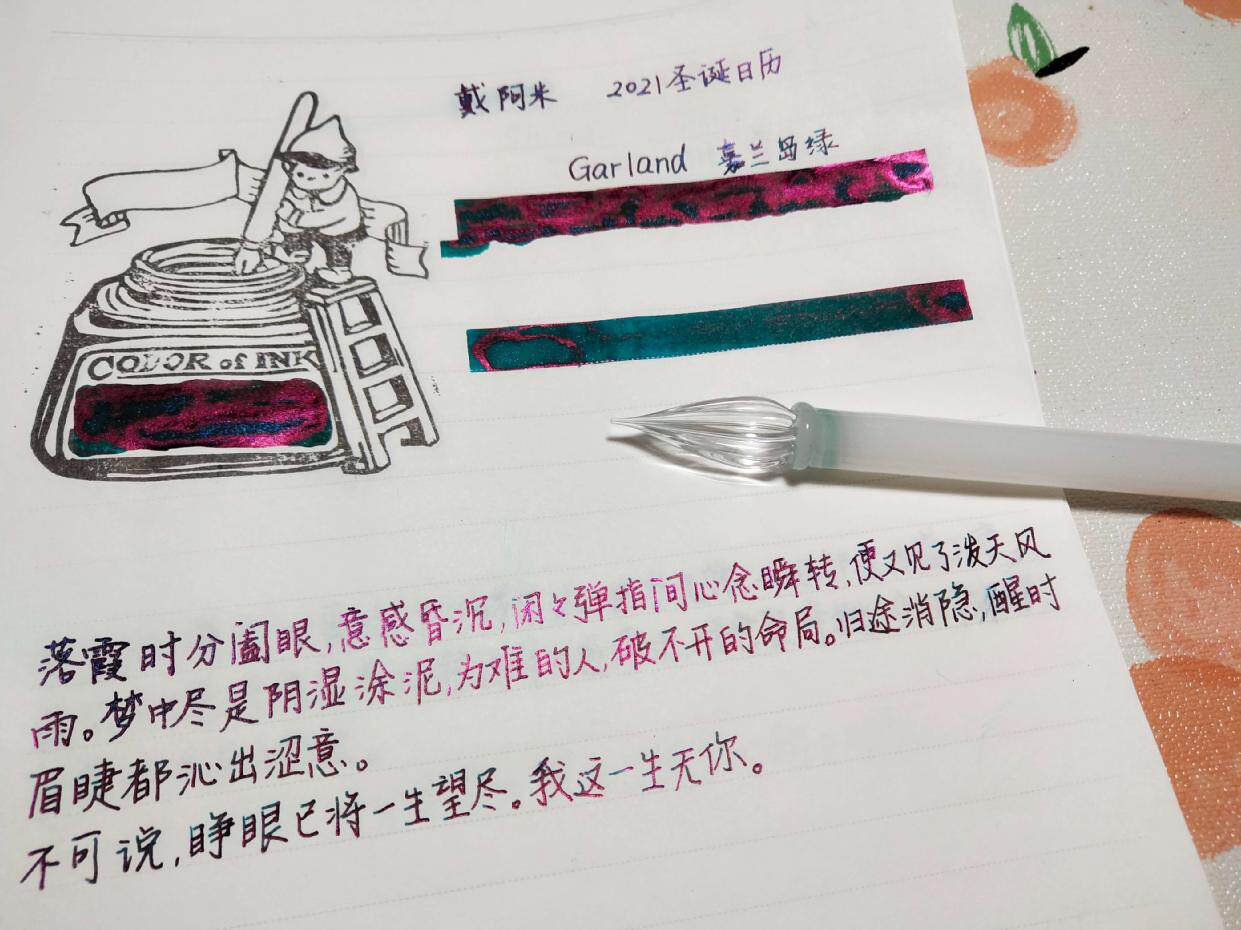 戴阿米 2021圣诞日历
Garland 嘉兰岛绿
COLOR of INK
落霞时分阖眼,意感昏沉,闲々弹指间心念瞬转,便又见了泼天风
雨。梦中尽是阴湿涂泥,为难的人,破不开的命局。归途消隐,醒时
眉睫都沁出涩意。
不可说,睁眼已将一生望尽。我这一生无你。